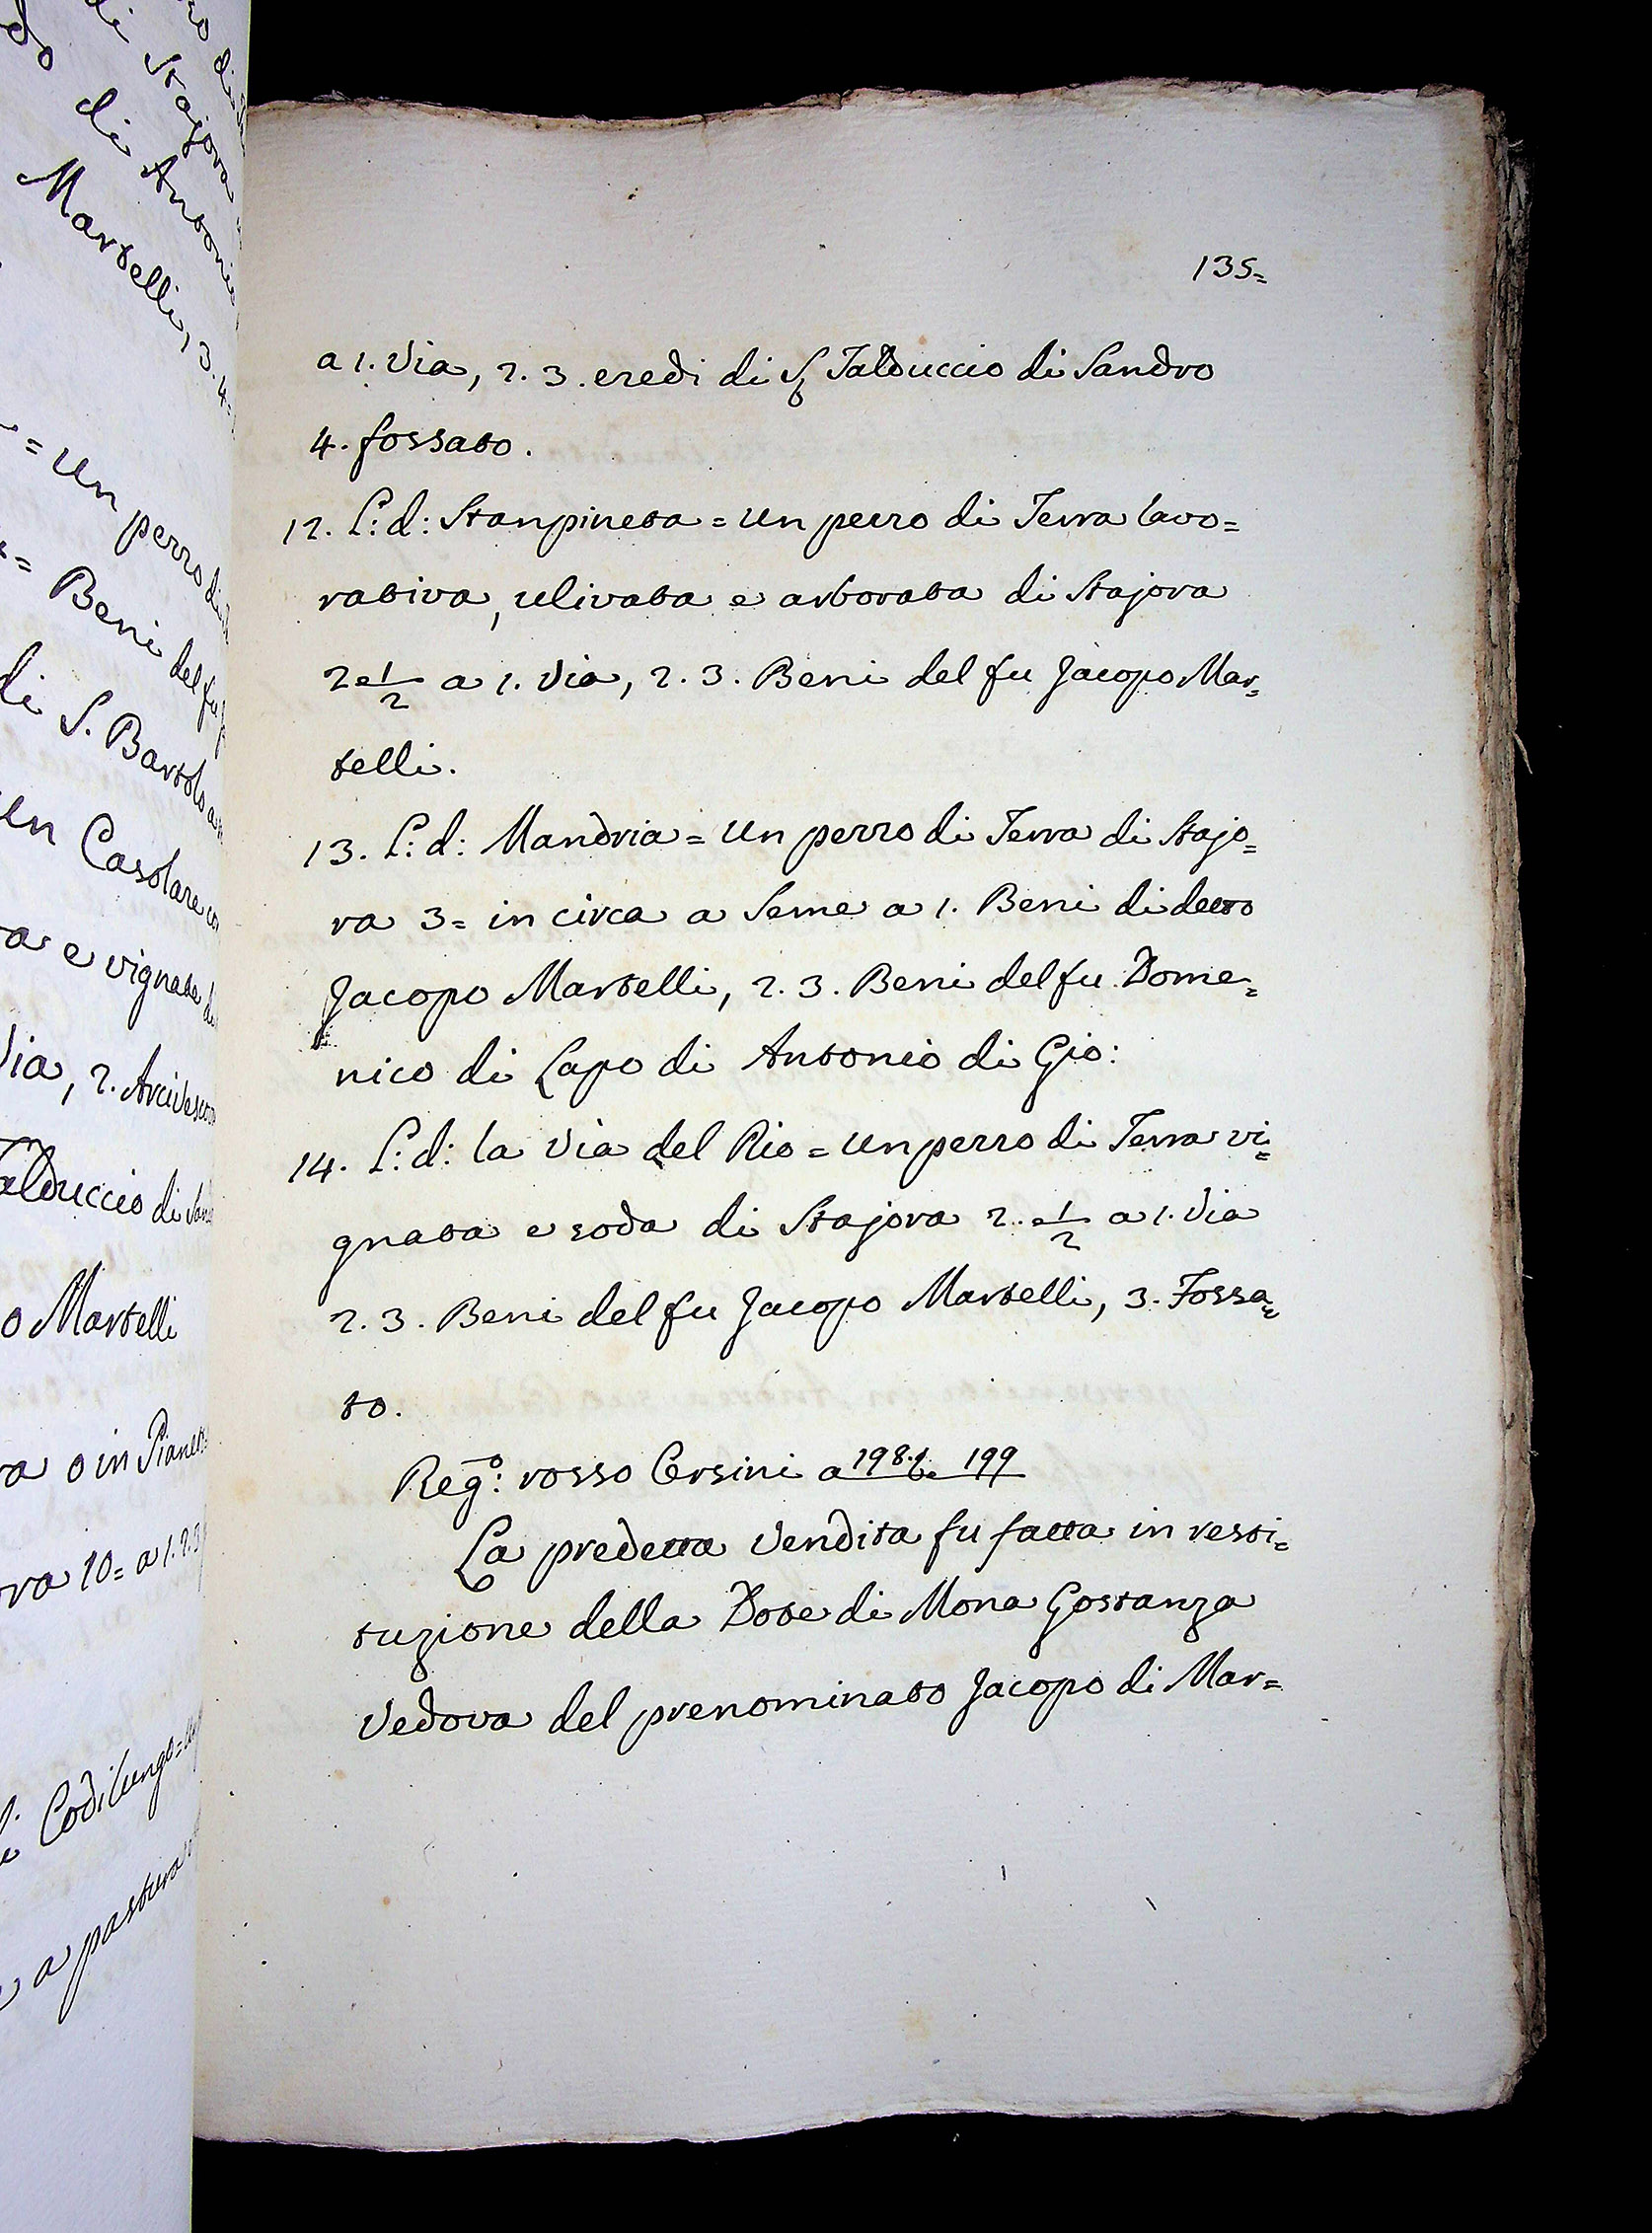 do
di Stajora
di Antoni
Martelli, 3. 4.
= Un pezzo di
= Beni del fu
di S. Bartolo a
un Casolare co
a e vignata di
Via, 2. Arcivesco
Talduccio di San
o Martelli
ra o in Pianet
ora 10= a 1. 2. 3
Codilungo=
a pastura
135=
a 1. Via, 2. 3. eredi di S. Talduccio di Sandro
4. fossato.
12. L: d: Stanpineta = Un pezzo di Terra lavo=
rativa, ulivata e arborata di Stajora
2 e 1/2 a 1. Via, 2. 3. Beni del fu Jacopo Mar=
telli.
13. L: d: Mandria = Un pezzo di Terra di Stajo=
ra 3= in circa a Seme a 1. Beni di detto
Jacopo Martelli, 2. 3. Beni del fu Dome=
nico di Lapo di Antonio di Gio:
14. L: d: la Via del Rio = Un pezzo di Terra vi=
gnata e soda di Stajora 2. e 1/2 a 1. Via
2. 3. Beni del fu Jacopo Martelli, 3. Fossa=
to.
Reg:o rosso Corsini a 198. e 199
La predetta Vendita fu fatta in resti=
tuzione della Dote di Mona Gostanza
Vedova del prenominato Jacopo di Mar=